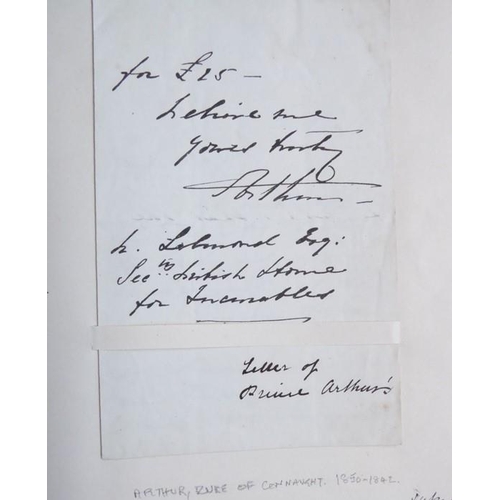 for £25 –
believe me
yours truly
Arthur –
Esq:
Secty British Home
for Incurables
Letter of
Prince Arthur's
ARTHUR, DUKE OF CONNAUGHT. 1850-1942.